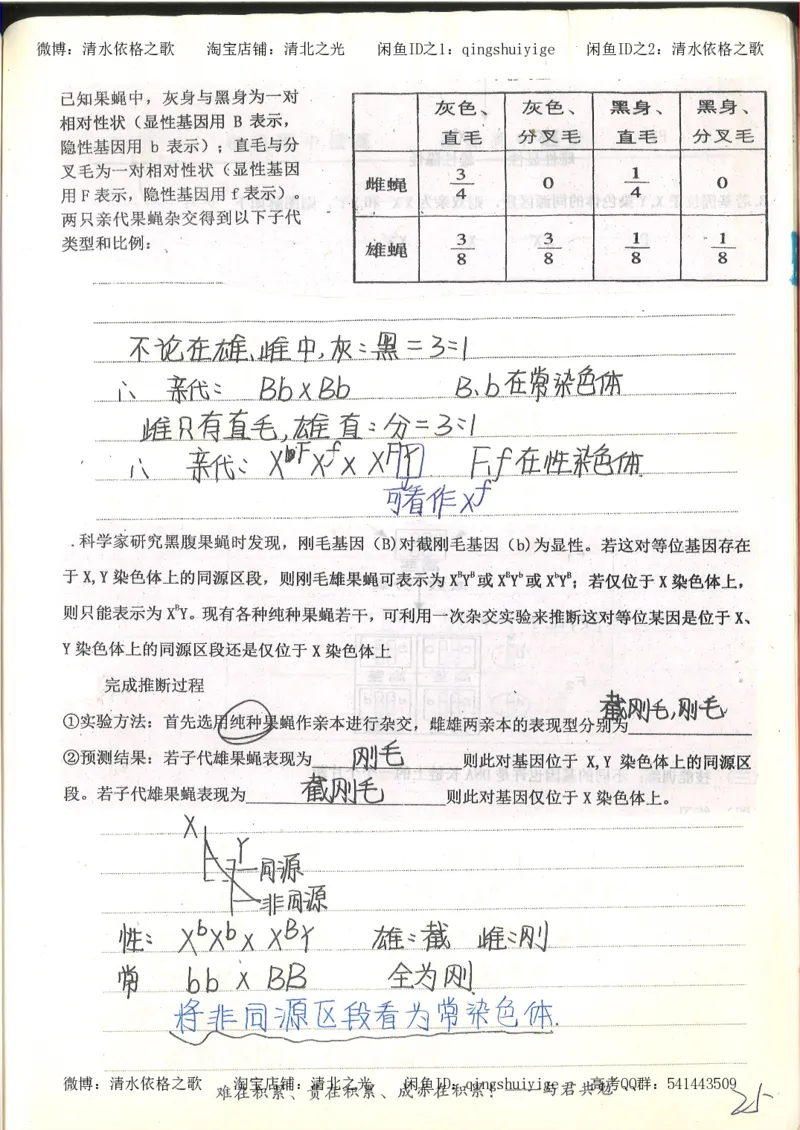 微博：清水依格之歌 淘宝店铺：清北之光 闲鱼ID之1：qingshuiyige 闲鱼ID之2：清水依格之歌
已知果蝇中，灰身与黑身为一对
相对性状（显性基因用 B 表示，
隐性基因用 b 表示）；直毛与分
叉毛为一对相对性状（显性基因
用 F 表示，隐性基因用 f 表示）。
两只亲代果蝇杂交得到以下子代
类型和比例：
灰色、直毛 灰色、分叉毛 黑身、直毛 黑身、分叉毛
雌蝇 3/4 0 1/4 0
雄蝇 3/8 3/8 1/8 1/8
不论在雄、雌中,灰:黑=3:1
∴ 亲代: Bb×Bb B、b在常染色体
雌只有直毛,雄直:分=3:1
∴ 亲代: XᶠXᶠ × XᶠY F、f在性染色体
可看作Xᶠ
.科学家研究黑腹果蝇时发现，刚毛基因（B)对截刚毛基因（b)为显性。若这对等位基因存在
于 X,Y 染色体上的同源区段，则刚毛雄果蝇可表示为 XᴮYᴮ或 XᴮYᵇ或 XᵇYᴮ；若仅位于 X 染色体上，
则只能表示为 XᴮY。现有各种纯种果蝇若干，可利用一次杂交实验来推断这对等位某因是位于 X、
Y 染色体上的同源区段还是仅位于 X 染色体上
完成推断过程
①实验方法：首先选用纯种果蝇作亲本进行杂交，雌雄两亲本的表现型分别为 截刚毛,刚毛
②预测结果：若子代雄果蝇表现为 刚毛 则此对基因位于 X,Y 染色体上的同源区
段。若子代雄果蝇表现为 截刚毛 则此对基因仅位于 X 染色体上。
X
Y
同源
非同源
性: XᵇXᵇ × XᴮY 雄:截 雌:刚
常 bb × BB 全为刚
将非同源区段看为常染色体.
微博：清水依格之歌 淘宝店铺：清北之光 闲鱼ID：qingshuiyige 高考QQ群：541443509
难在积累、贵在积累、成亦在积累！——与君共勉
25